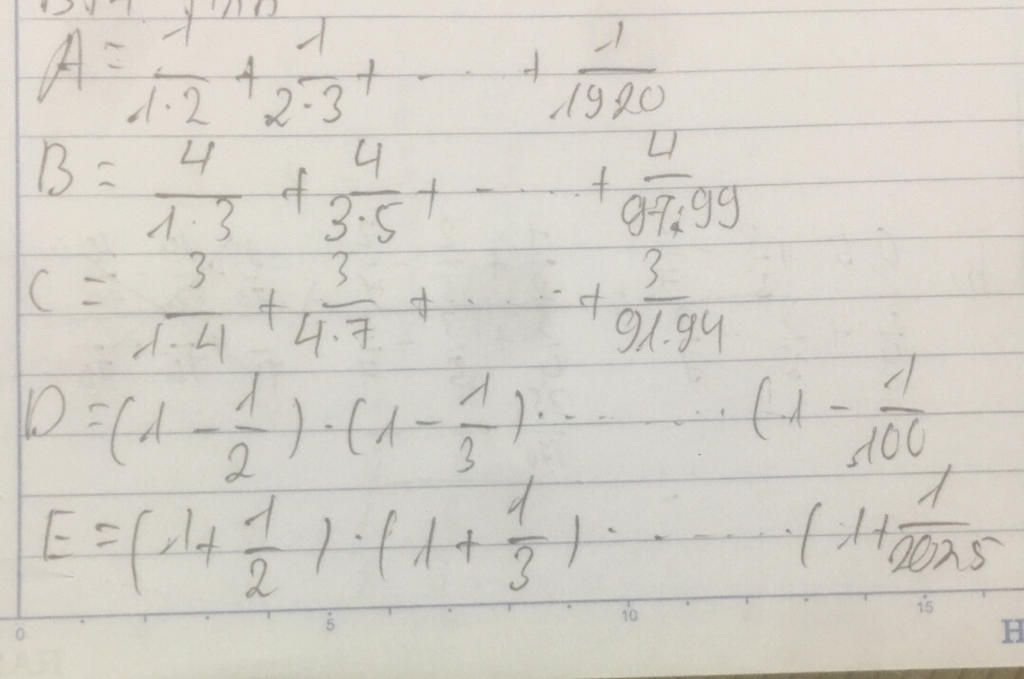 A = 1/1·2 + 1/2·3 + ..... + 1/1920
B = 4/1·3 + 4/3·5 + ..... + 4/97.99
C = 3/1·4 + 3/4·7 + ..... + 3/91.94
D = (1 - 1/2) · (1 - 1/3) · ....... (1 - 1/100
E = (1 + 1/2) · (1 + 1/3) · ....... (1 + 1/2025
0 5 10 15
H